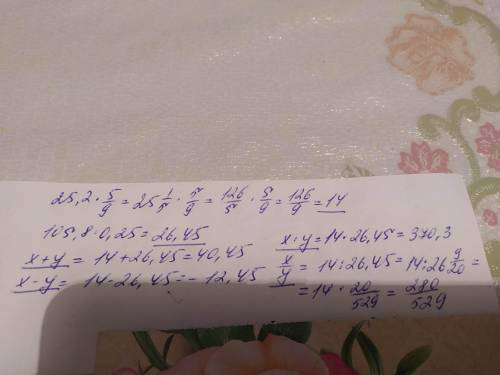 25,2 · 5/9 = 25 1/5 · 5/9 = 126/5 · 5/9 = 126/9 = 14
105,8 · 0,25 = 26,45
x+y = 14 + 26,45 = 40,45
x-y = 14 - 26,45 = - 12,45
x·y = 14 · 26,45 = 370,3
x/y = 14 : 26,45 = 14 : 26 9/20 =
= 14 · 20/529 = 280/529